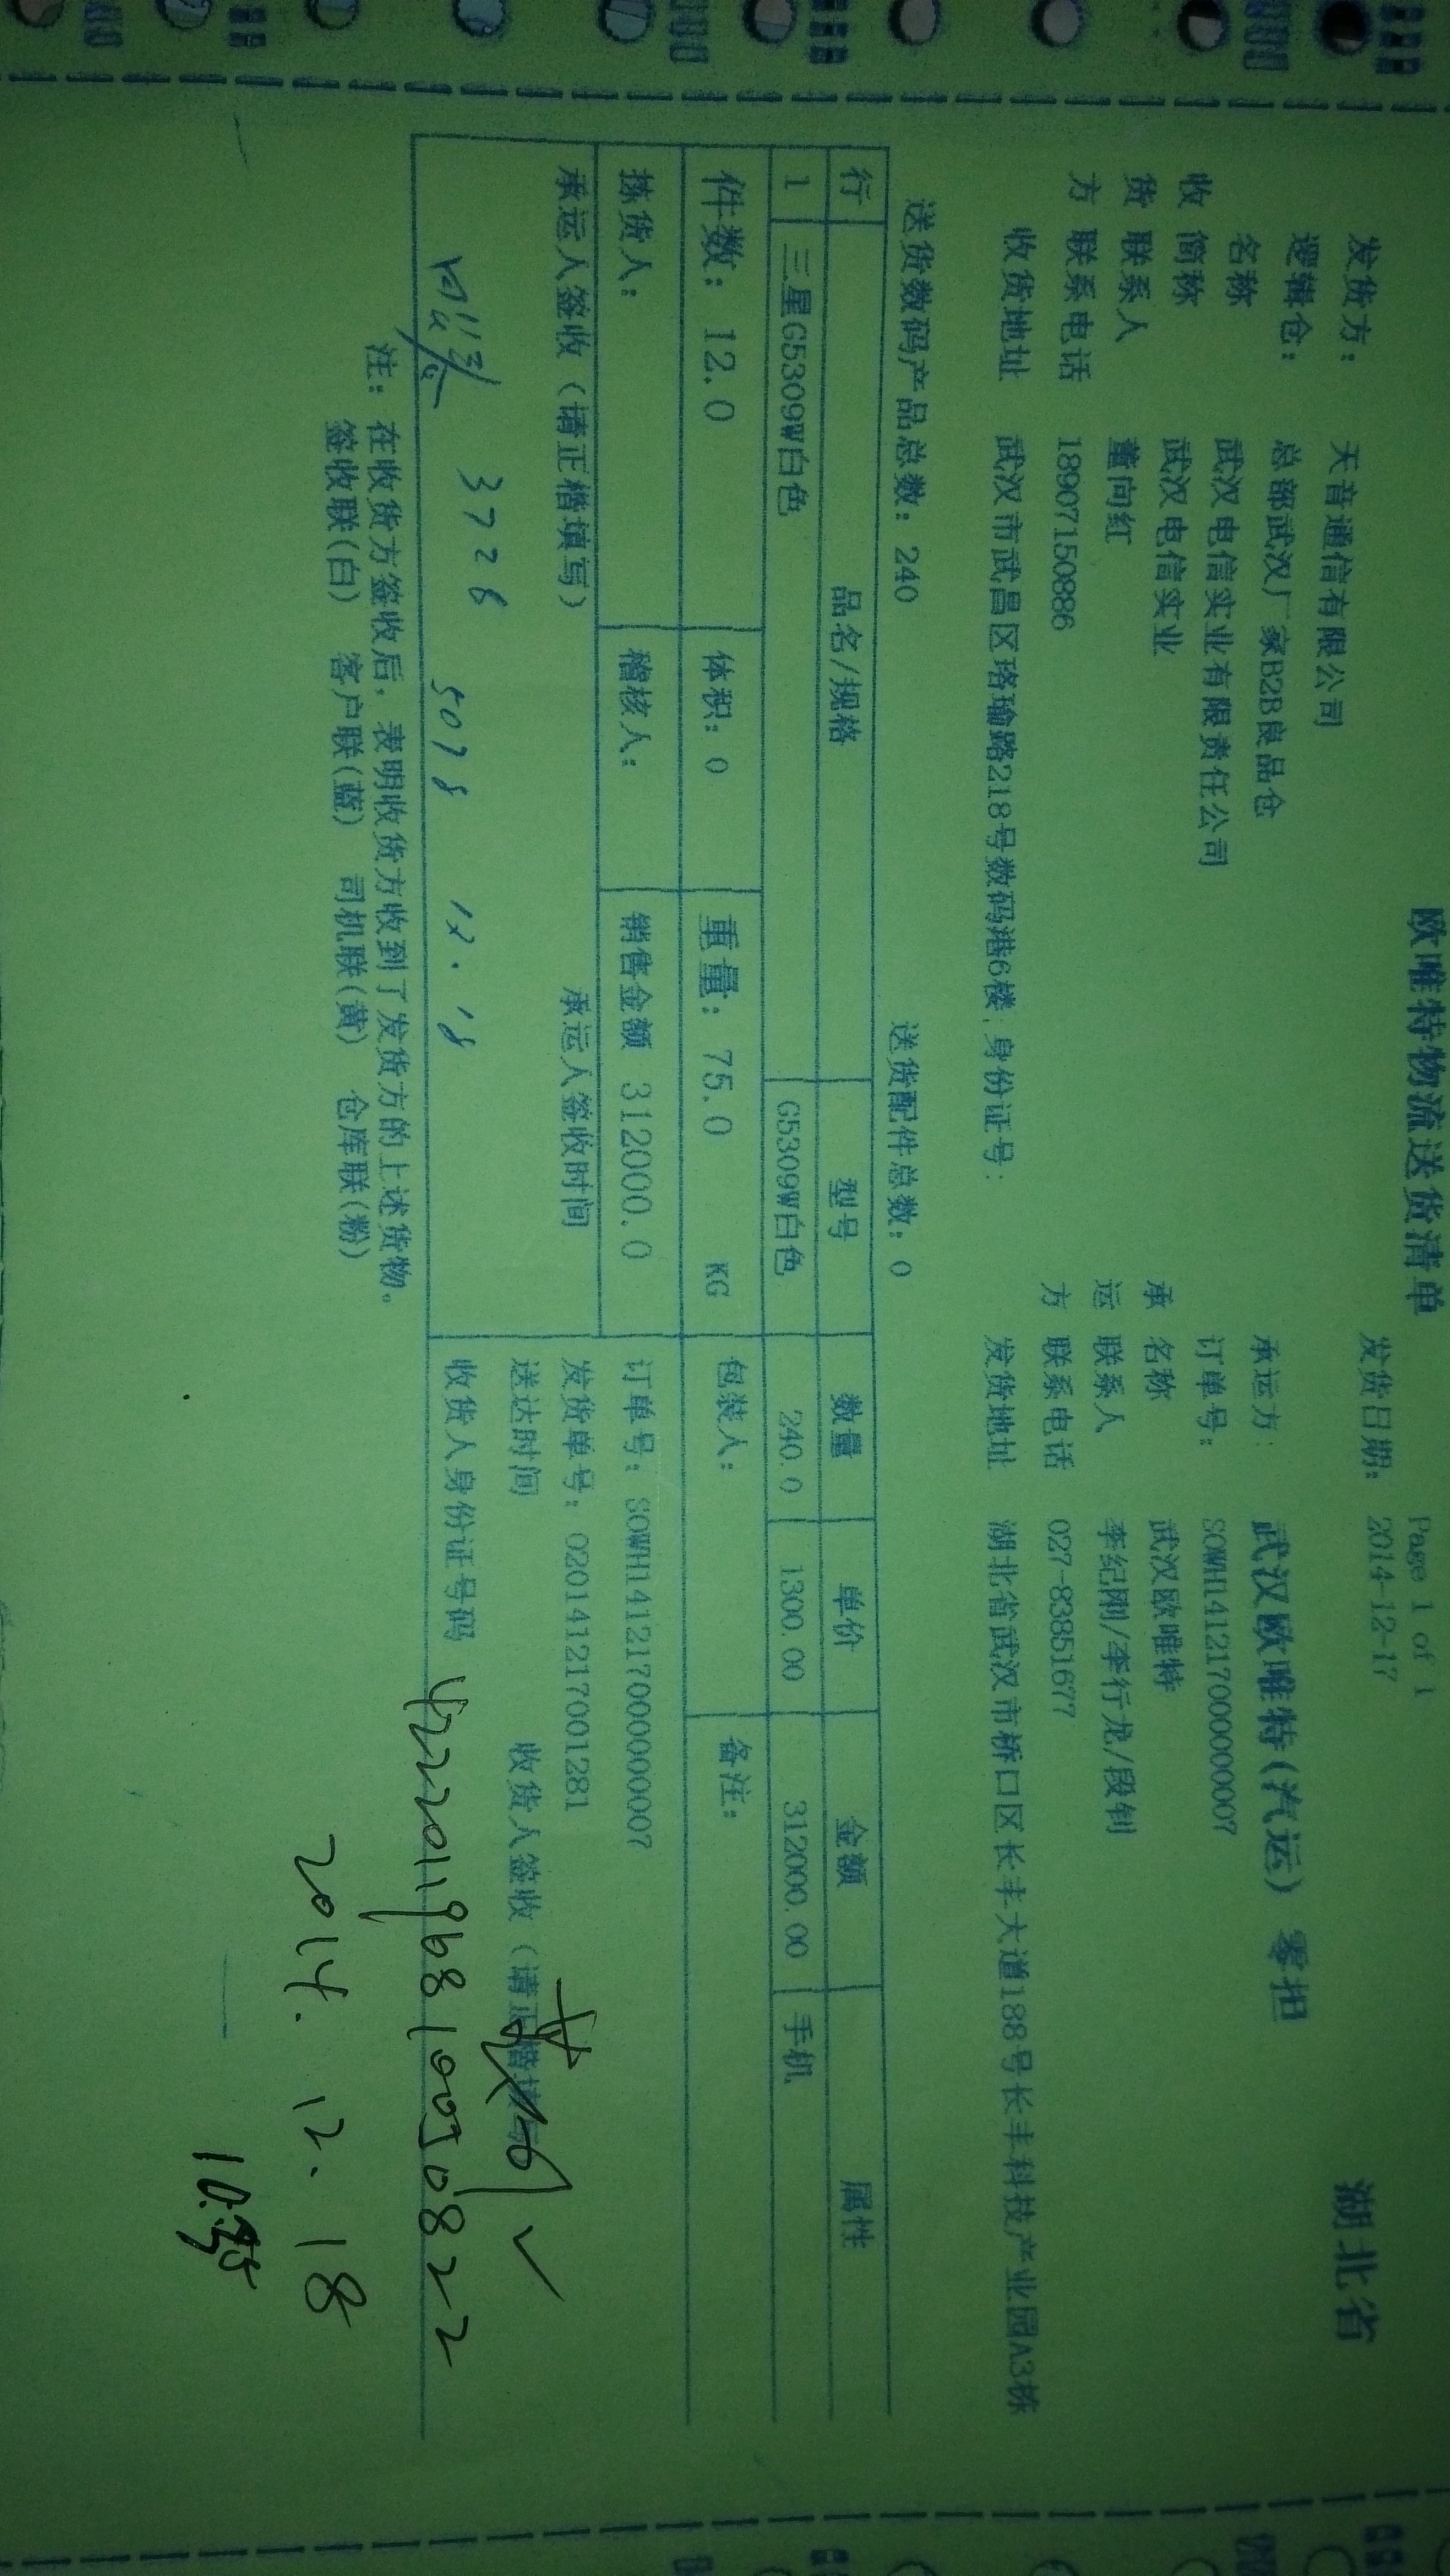 欧唯特物流送货清单
Page 1 of 1
湖北省
发货日期： 2014-12-17
发货方： 天音通信有限公司
逻辑仓： 总部武汉厂家B2B良品仓
承运方： 武汉欧唯特(汽运) 零担
订单号： SOWH141217000000007
收货方
名称 武汉电信实业有限责任公司
简称 武汉电信实业
联系人 董向红
联系电话 18907150886
收货地址 武汉市武昌区珞瑜路218号数码港6楼,身份证号：
承运方
名称 武汉欧唯特
联系人 李纪刚/李行龙/段钊
联系电话 027-83851677
发货地址 湖北省武汉市桥口区长丰大道188号长丰科技产业园A3栋
送货数码产品总数：240 送货配件总数：0
行 品名/规格 型号 数量 单价 金额 属性
1 三星G5309W白色 G5309W白色 240.0 1300.00 312000.00 手机
件数： 12.0 体积：0 重量： 75.0 KG 包装人： 备注：
拣货人： 稽核人： 销售金额 312000.0 订单号：SOWH141217000000007
承运人签收（请正楷填写） 承运人签收时间 发货单号：020141217001281
送达时间 收货人签收（请正楷填写
3726 5078 12.18
收货人身份证号码 422201196810050822
注：在收货方签收后，表明收货方收到了发货方的上述货物。
签收联(白) 客户联(蓝) 司机联(黄) 仓库联(粉)
2014.12.18